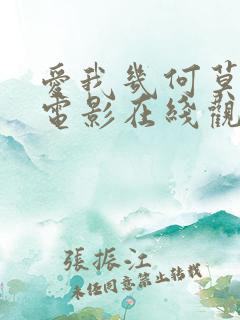 愛我幾何莫
電影在綫觀
張振江
未經同意禁止轉載